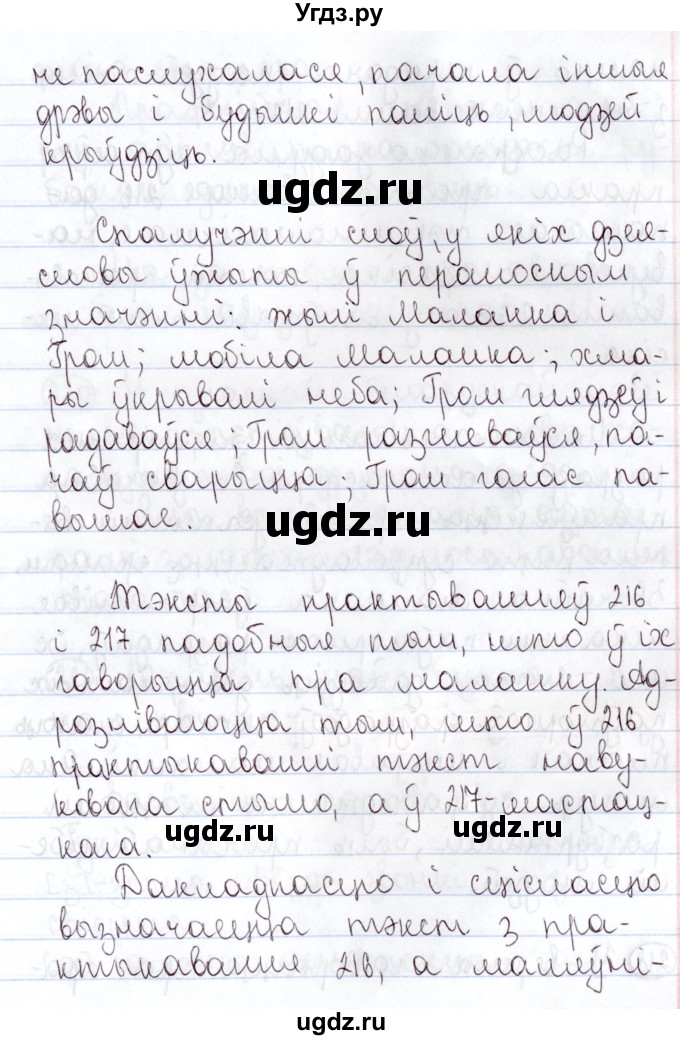 Угдз.ру
не паслухалася, пачала іншыя
дрэвы і будынкі паліць, людзей
крыўдзіць.
ugdz.ru
Спалучэнні слоў, у якіх дзея-
словы ўжыты ў пераносным
значэнні: жылі Маланка і
Гром; любіла Маланка; хма-
ры ўкрывалі неба; Гром глядзеў і
радаваўся; Гром разгневаўся, па-
чаў сварыцца; Гром голас па-
вышае.
ugdz.ru
Тэксты практываннеў 216
і 217 падобныя тым, што ў іх
гаворыцца пра маланку. Ад-
розніваюцца тым, што ў 216
практыкаванні тэкст наву-
ковага стылю, а ў 217 - мастац-
кага.
ugdz.ru
ugdz.ru
Дакладнасцю і сцісласцю
вызначаецца тэкст з пра-
ктыкавання 216, а маляўні-
ugdz.ru